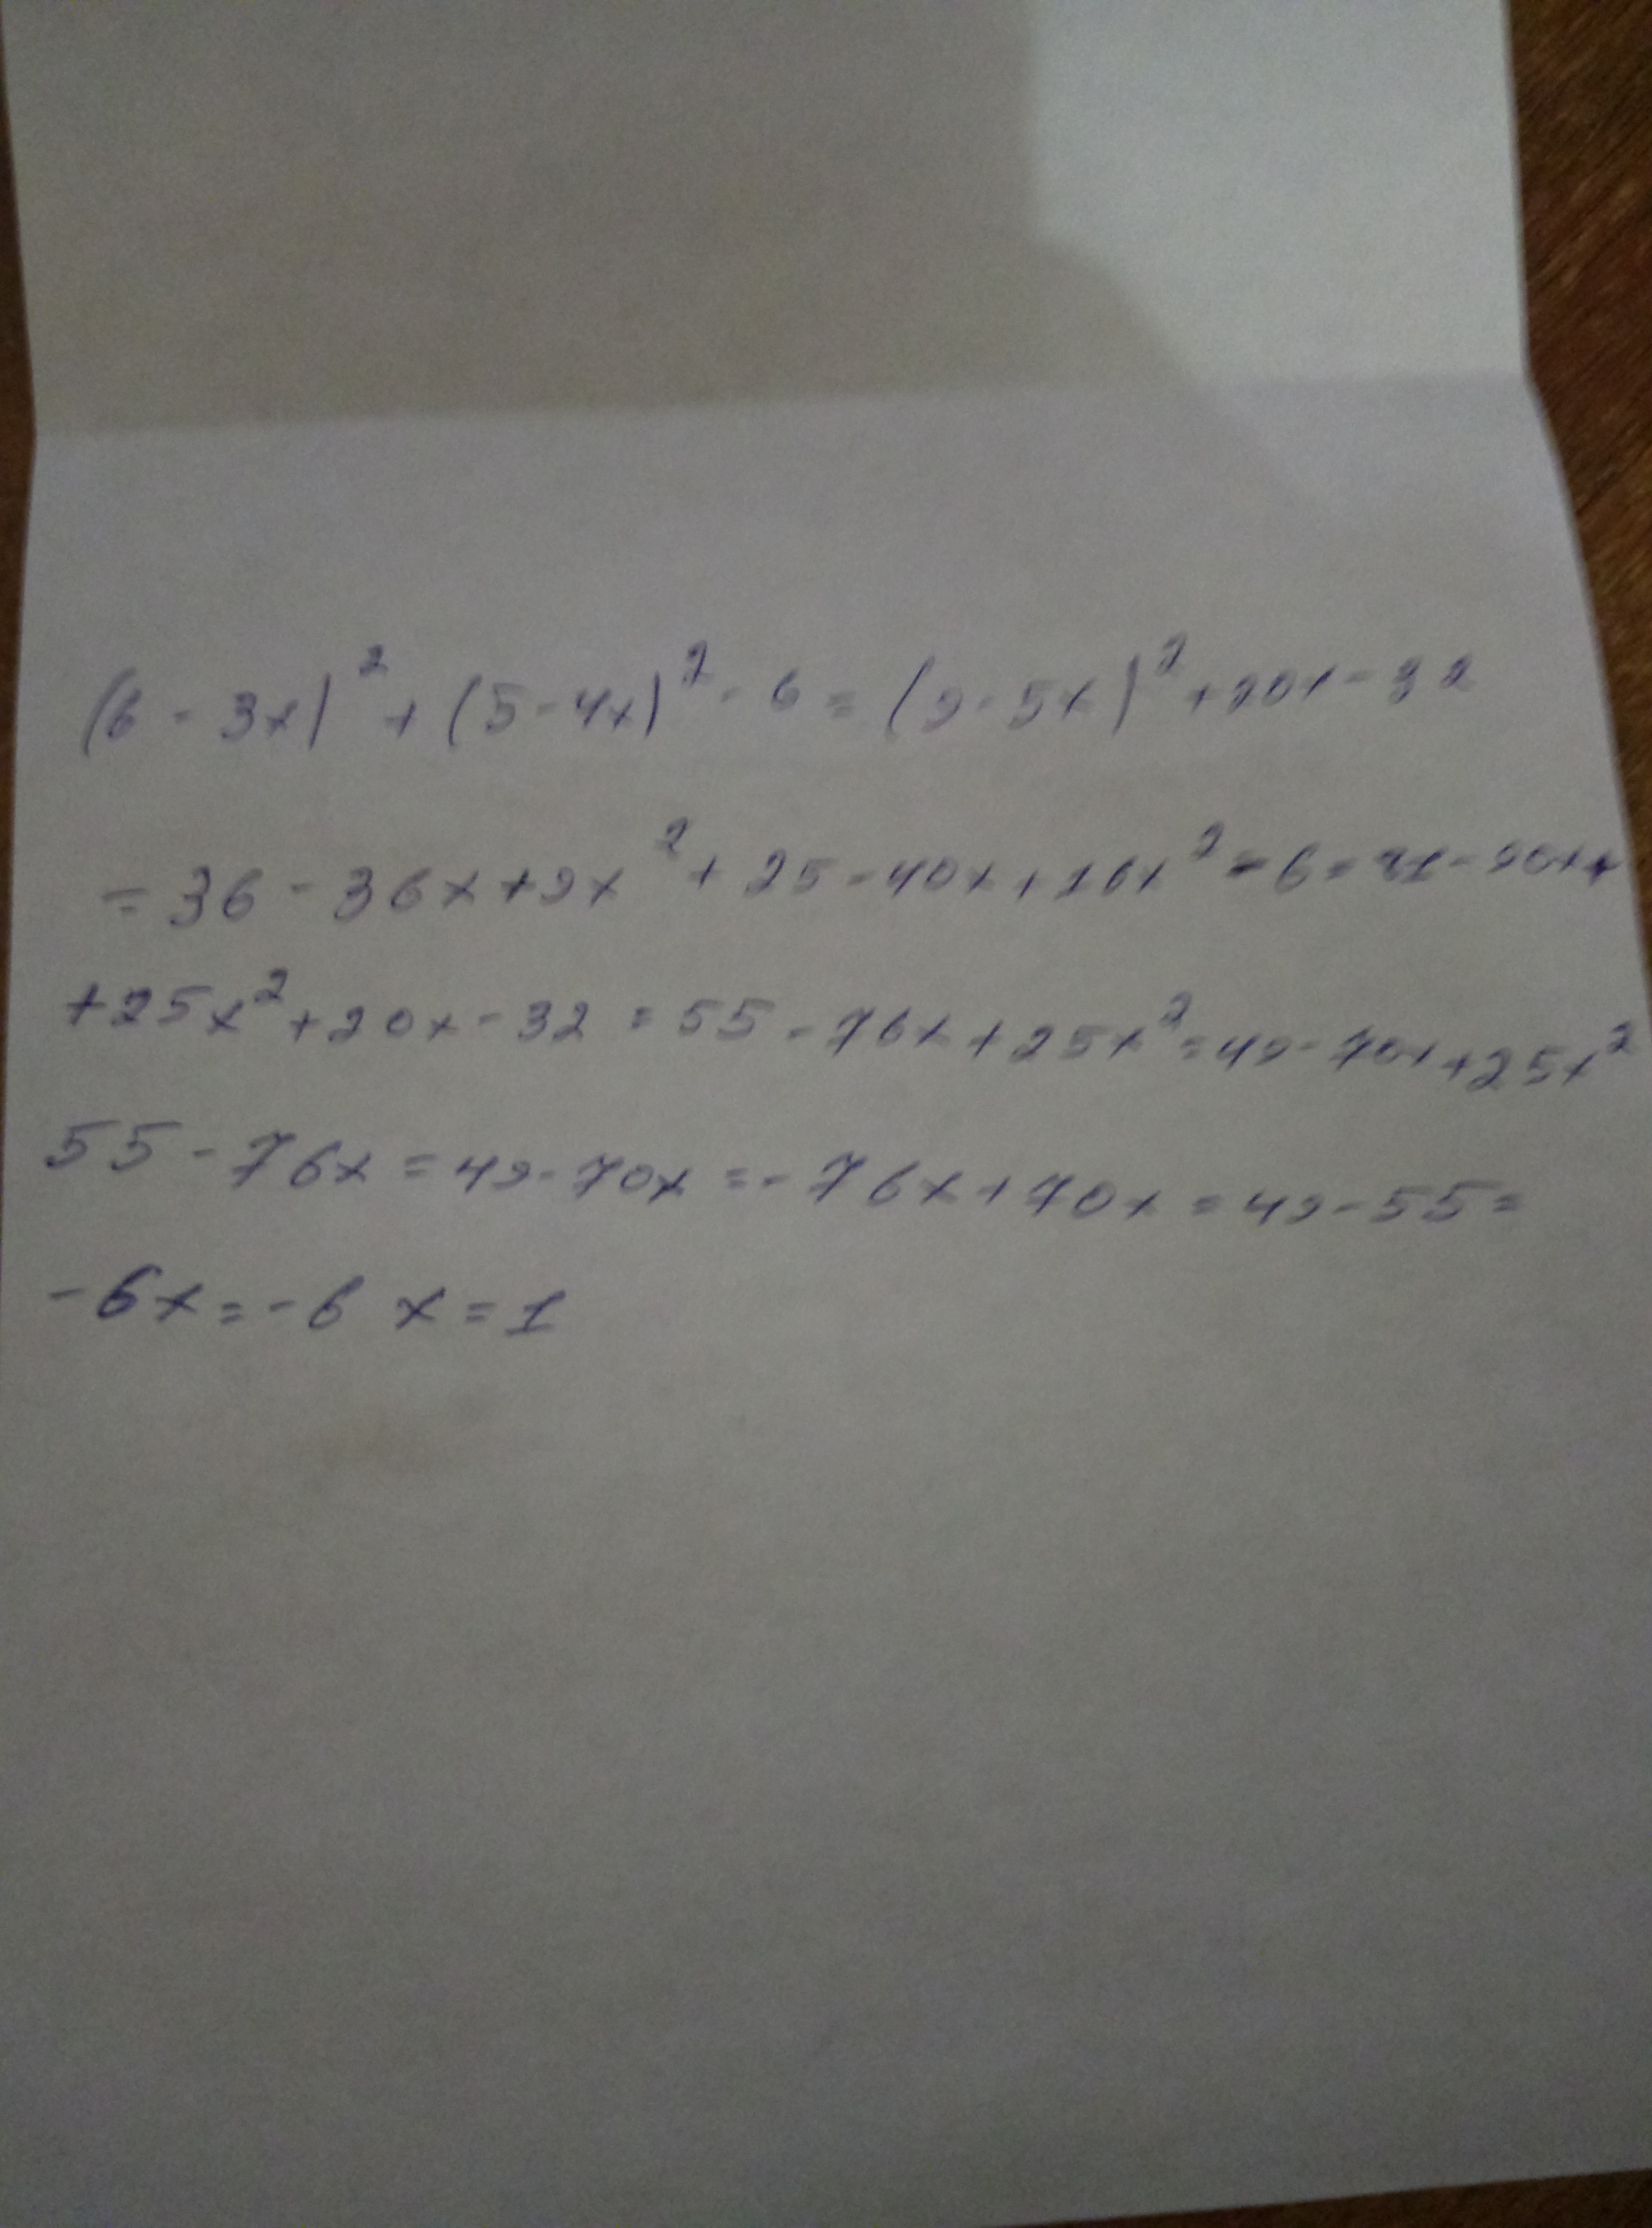 (6 - 3x)² + (5 - 4x)² - 6 = (9 - 5x)² + 20x - 32
= 36 - 36x + 9x² + 25 - 40x + 16x² - 6 = 81 - 90x +
+ 25x² + 20x - 32 = 55 - 76x + 25x² = 49 - 70x + 25x²
55 - 76x = 49 - 70x = - 76x + 70x = 49 - 55 =
- 6x = - 6 x = 1